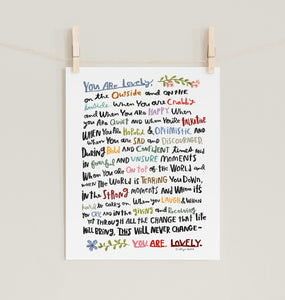 You Are Lovely.
on the Outside and on the
inside. When You are Crabby
and When You Are HAPPY. When
you Are Quiet AND When You're Talkative
WHEN You Are Hopeful & OPTIMISTIC AND
when You are SAD and DISCOURAGED.
DURING Bold AND Confident times and
in fearful and UNSURE MOMENTS
When You Are On top of the World and
WHEN THE WORLD is TEARING You Down.
In the STRONG MOMENTS AND When it's
hard to carry on. When you LAUGH & WHEN
You CRY, and in the giving and Receiving.
YET THROUGH ALL THE CHANGE that life
Will BRING, THIS Will NEVER CHANGE-
YOU ARE LOVELY.